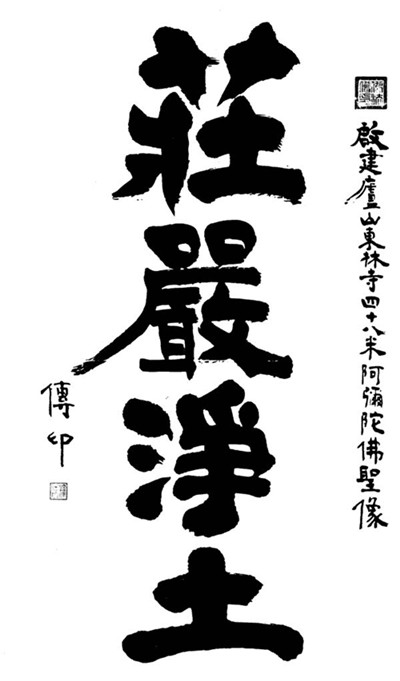 啟建廬山東林寺四十八米阿彌陀佛聖像
莊嚴淨土
傳印